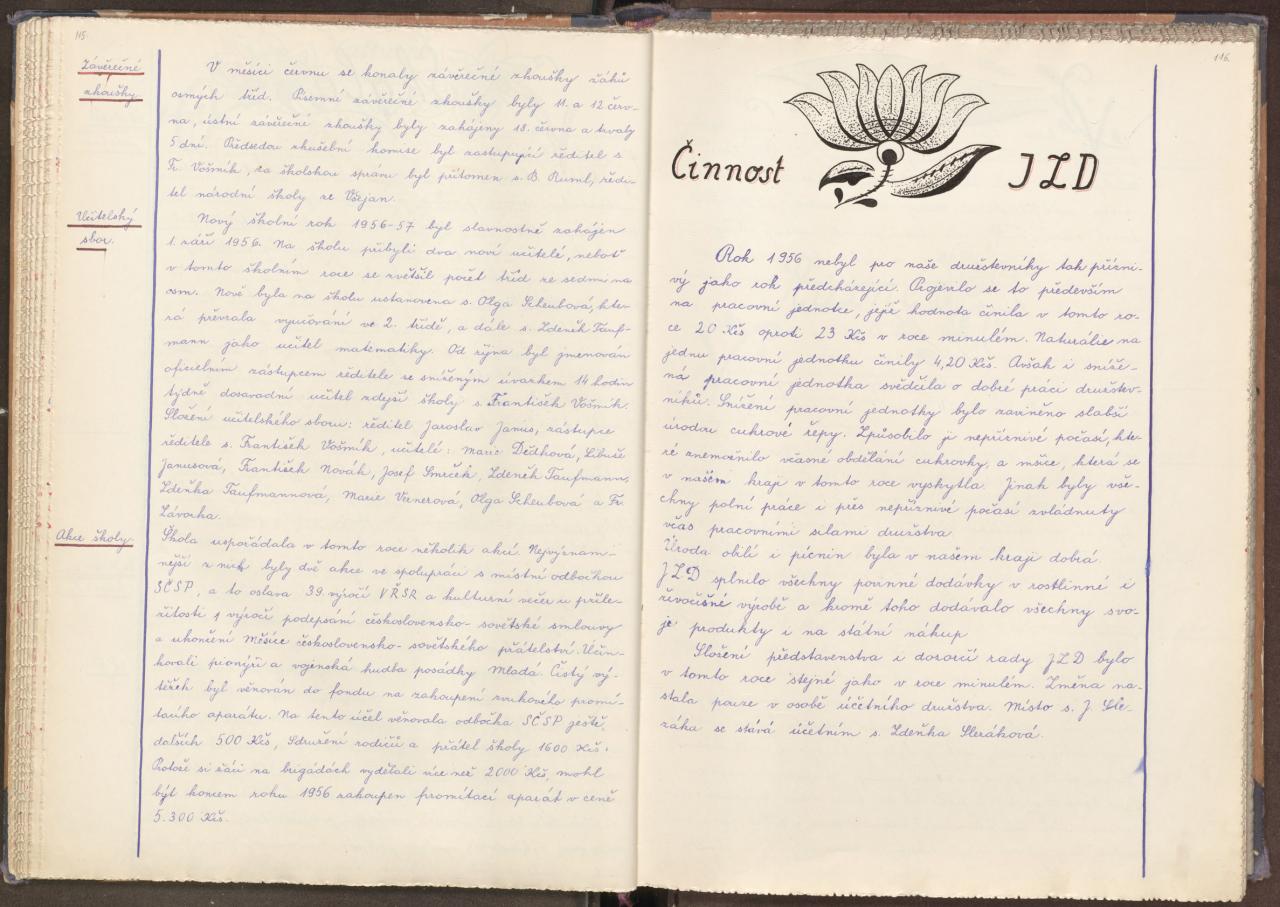 115.
Závěrečné
zkoušky.
V měsíci červnu se konaly závěrečné zkoušky žáků
osmých tříd. Písemné závěrečné zkoušky byly 11. a 12 červ-
na, ústní závěrečné zkoušky byly zahájeny 18. června a trvaly
5 dní. Předsedou zkušební komise byl zastupující ředitel s.
Fr. Vošmik, za školskou správu byl přítomen s. B. Ruml, ředi-
tel národní školy ze Všejan.
Učitelský
sbor.
Nový školní rok 1956-57 byl slavnostně zahájen
1. září 1956. Na školu přibyli dva noví učitelé, neboť
v tomto školním roce se zvětšil počet tříd ze sedmi na
osm. Nově byla na školu ustanovena s. Olga Scheubová, kte-
rá převzala vyučování ve 2. třídě, a dále s. Zdeněk Tauf-
mann jako učitel matematiky. Od října byl jmenován
oficielním zástupcem ředitele se sníženým úvazkem 14 hodin
týdně dosavadní učitel zdejší školy s. František Vošmik.
Složení učitelského sboru: ředitel Jaroslav Janus, zástupce
ředitele s. František Vošmik, učitelé: Marie Dědková, Libuše
Janusová, František Novák, Josef Smrček, Zdeněk Taufmann,
Zdeňka Taufmannová, Marie Vernerová, Olga Scheubová a Fr.
Závorka.
Akce školy.
Škola uspořádala v tomto roce několik akcí. Nejvýznam-
nější z nich byly dvě akce ve spolupráci s místní odbočkou
SČSP, a to oslava 39. výročí VŘSR a kulturní večer u příle-
žitosti výročí podepsání československo-sovětské smlouvy
a ukončení Měsíce československo-sovětského přátelství. Účin-
kovali pionýři a vojenská hudba posádky Mladá. Čistý vý-
těžek byl věnován do fondu na zakoupení zvukového promí-
tacího aparátu. Na tento účel věnovala odbočka SČSP ještě
dalších 500 Kčs, Sdružení rodičů a přátel školy 1600 Kčs.
Protože si žáci na brigádách vydělali více než 2000 Kčs, mohl
být koncem roku 1956 zakoupen promítací aparát v ceně
5.300 Kčs.
116.
Činnost JZD
Rok 1956 nebyl pro naše družstevníky tak přízni-
vý jako rok předcházející. Projevilo se to především
na pracovní jednotce, jejíž hodnota činila v tomto ro-
ce 20 Kčs oproti 23 Kčs v roce minulém. Naturálie na
jednu pracovní jednotku činily 4,20 Kčs. Avšak i sníže-
ná pracovní jednotka svědčila o dobré práci družstev-
níků. Snížení pracovní jednotky bylo zaviněno slabší
úrodou cukrové řepy. Způsobilo ji nepříznivé počasí, kte-
ré znemožnilo včasné obdělání cukrovky, a mšice, která se
v našem kraji v tomto roce vyskytla. Jinak byly vše-
chny polní práce i přes nepříznivé počasí zvládnuty
včas pracovními silami družstva
Úroda obilí i pícnin byla v našem kraji dobrá.
JZD splnilo všechny povinné dodávky v rostlinné i
živočišné výrobě a kromě toho dodávalo všechny svo-
je produkty i na státní nákup
Složení představenstva i dozorčí rady JZD bylo
v tomto roce stejné jako v roce minulém. Změna na-
stala pouze v osobě účetního družstva. Místo s. J. Sle-
záka se stává účetním s. Zdeňka Slezáková.